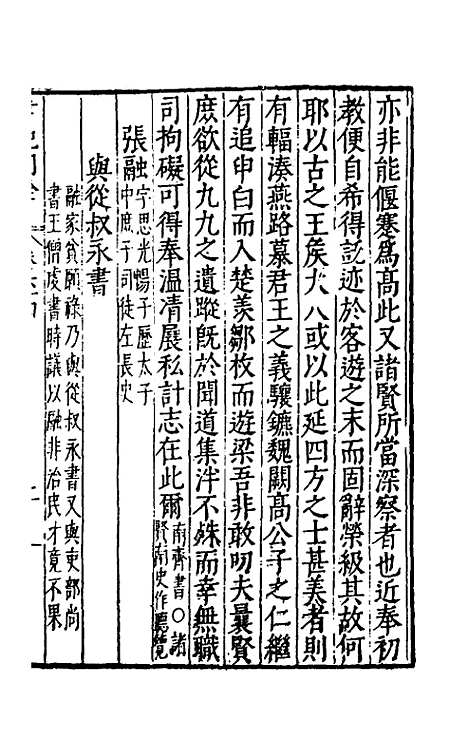 亦非能偃蹇爲高此又諸賢所當深察者也近奉初
教便自希得託迹於客遊之末而固辭榮級其故何
耶以古之王矦大人或以此延四方之士甚美者則
有輻湊燕路慕君王之義驤鑣魏闕高公子之仁繼
有追申白而入楚羡鄒枚而遊梁吾非敢叨夫曩賢
庶欲從九九之遺蹤旣於聞道集泮不殊而幸無職
司拘礙可得奉温凊展私計志在此爾
南齊書○諸
賢南史作聽覽
張融
字思光暢子歷太子
中庶子司徒左長史
與從叔永書
融家貧願祿乃與從叔永書又與吏部尚
書王僧虔書時議以融非治民才竟不果